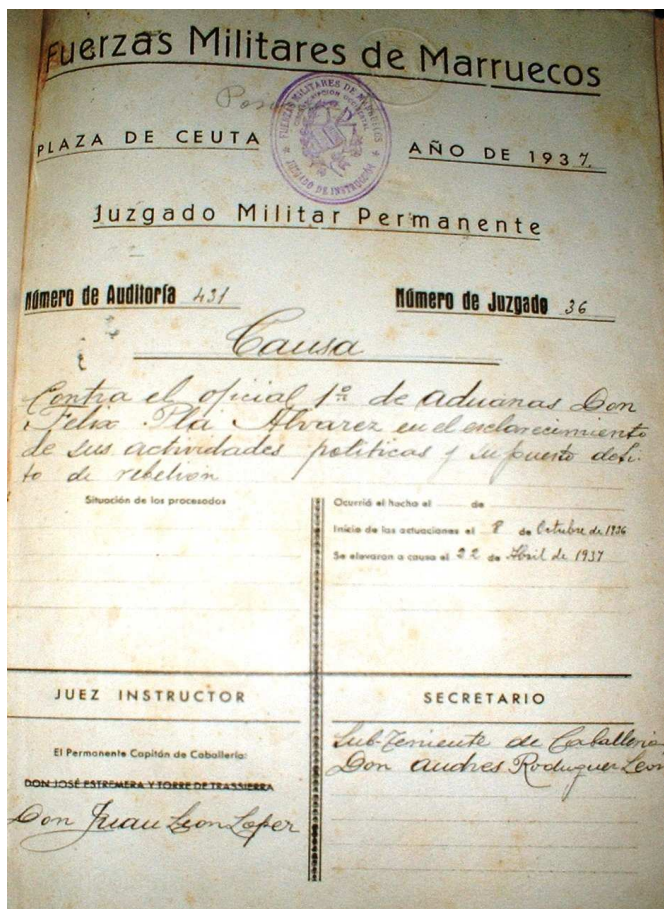 Fuerzas Militares de Marruecos
FUERZAS MILITARES DE MARRUECOS
JUZGADO DE INSTRUCCIÓN
PLAZA DE CEUTA
AÑO DE 1937.
Juzgado Militar Permanente
Número de Auditoría 431
Número de Juzgado 36
Causa
Contra el oficial 1º de aduanas Don
Felix Pla Alvarez en el esclarecimiento
de sus actividades politicas y supuesto deli-
to de rebelion
Situación de los procesados
Ocurrió el hecho el de
Inicio de las actuaciones el 8 de Octubre de 1936
Se elevaron a causa el 22 de Abril de 1937
JUEZ INSTRUCTOR
El Permanente Capitán de Caballería:
DON JOSÉ ESTREMERA Y TORRE DE TRASSIERRA
Don Juan Leon Lopez
SECRETARIO
Sub-Teniente de Caballeria
Don Andres Rodriguez Leon